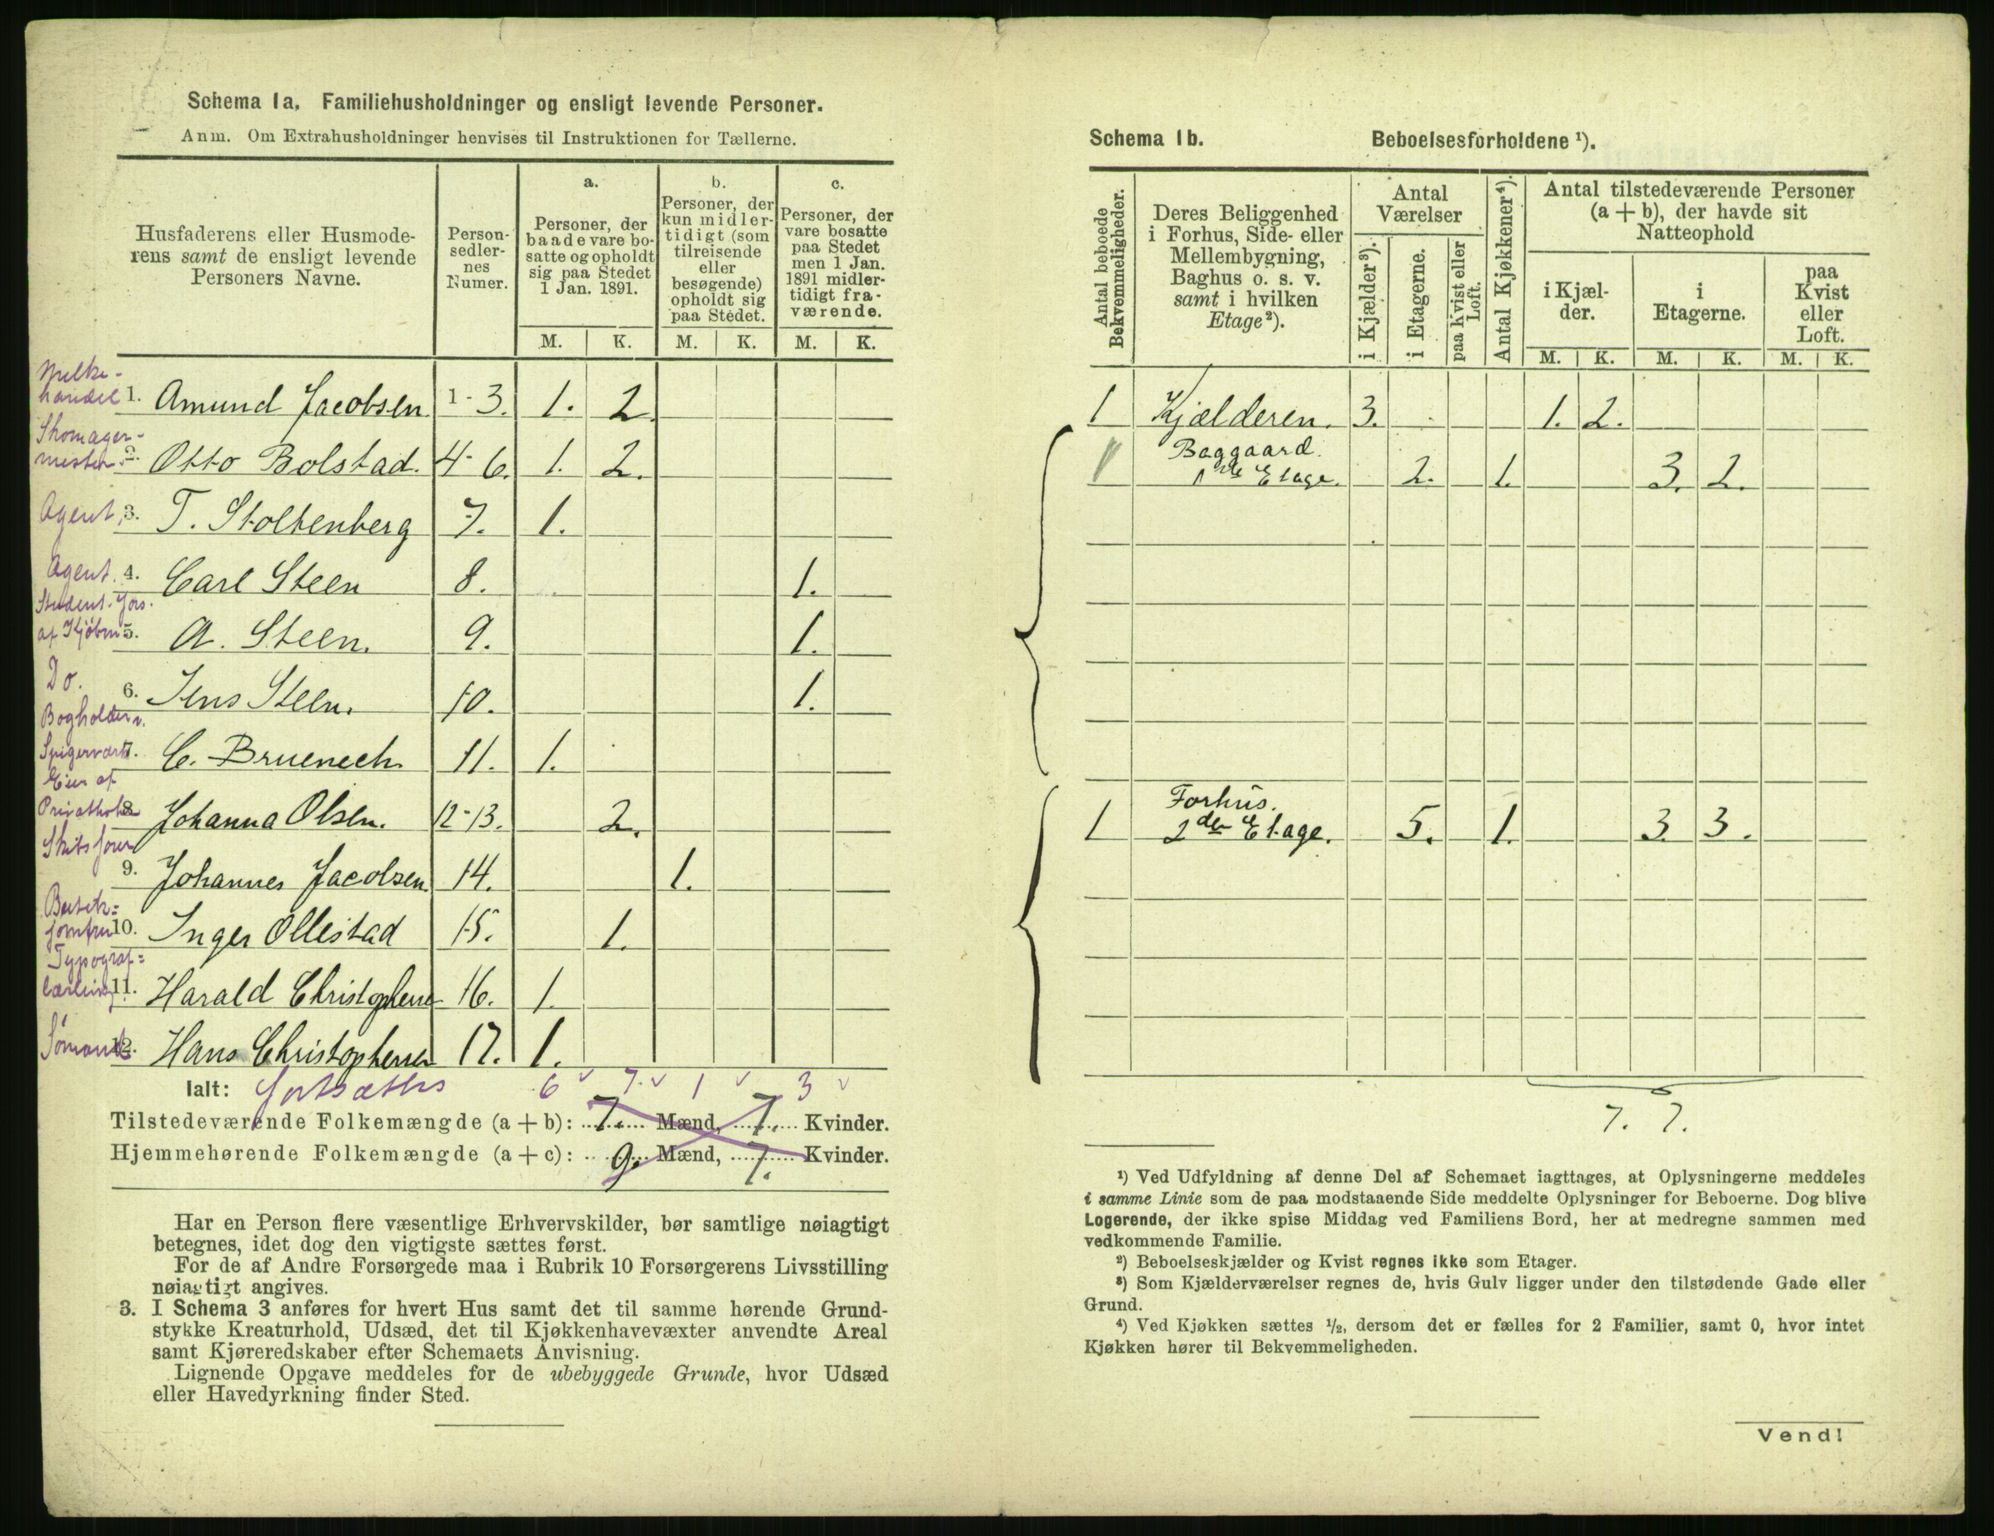 Schema 1a. Familiehusholdninger og ensligt levende Personer.
Anm. Om Extrahusholdninger henvises til Instruktionen for Tællerne.
Husfaderens eller Husmode-
rens samt de ensligt levende
Personers Navne.
Person-
sedler-
nes
Numer.
a.
Personer, der
baade vare bo-
satte og opholdt
sig paa Stedet
1 Jan. 1891.
b.
Personer, der
kun midler-
tidigt (som
tilreisende
eller
besøgende)
opholdt sig
paa Stedet.
c.
Personer, der
vare bosatte
paa Stedet
men 1 Jan.
1891 midler-
tidigt fra-
værende.
M. K. M. K. M. K.
Melke-
handel 1. Amund Jacobsen 1-3. 1. 2
Skomager-
mester 2. Otto Bolstad. 4-6. 1. 2.
Agent, 3. T. Stoltenberg 7. 1.
Agent. 4. Carl Steen 8. 1.
Student. fors.
af Kjøbm 5. A. Steen. 9. 1.
Do. 6. Jens Steen. 10. 1.
Bogholder v.
Spigerværk 7. C. Bruenech 11. 1.
Eier af
8. Johanna Olsen. 12-13. 2.
Skitsfører
9. Johannes Jacobsen. 14. 1.
Butik=
jomfru 10. Inger Ollestad 15. 1.
Typograf=
lærling 11. Harald Christophersen 16. 1.
Sømand 12. Hans Christophersen 17. 1.
Ialt: fortsættes 6 7. 1 3
Tilstedeværende Folkemængde (a + b): 7. Mænd, 7. Kvinder.
Hjemmehørende Folkemængde (a + c): 9. Mænd, 7. Kvinder.
Har en Person flere væsentlige Erhvervskilder, bør samtlige nøiagtigt
betegnes, idet dog den vigtigste sættes først.
For de af Andre Forsørgede maa i Rubrik 10 Forsørgerens Livsstilling
nøiagtigt angives.
3. I Schema 3 anføres for hvert Hus samt det til samme hørende Grund-
stykke Kreaturhold, Udsæd, det til Kjøkkenhavevæxter anvendte Areal
samt Kjøreredskaber efter Schemaets Anvisning.
Lignende Opgave meddeles for de ubebyggede Grunde, hvor Udsæd
eller Havedyrkning finder Sted.
Schema 1b. Beboelsesforholdene ¹).
Antal beboede
Bekvemmeligheder.
Deres Beliggenhed
i Forhus, Side- eller
Mellembygning,
Baghus o. s. v.
samt i hvilken
Etage²).
Antal
Værelser
i Kjælder³).
i Etagerne.
paa Kvist eller
Loft.
Antal Kjøkkener⁴).
Antal tilstedeværende Personer
(a + b), der havde sit
Natteophold
i Kjæl-
der.
i
Etagerne.
paa
Kvist
eller
Loft.
M. K. M. K. M. K.
1 Kjælderen. 3. 1. 2.
1 Baggaard.
1ste Etage. 2. 1. 3. 2.
1 Forhus.
2den Etage. 5. 1. 3. 3.
7. 7.
¹) Ved Udfyldning af denne Del af Schemaet iagttages, at Oplysningerne meddeles
i samme Linie som de paa modstaaende Side meddelte Oplysninger for Beboerne. Dog blive
Logerende, der ikke spise Middag ved Familiens Bord, her at medregne sammen med
vedkommende Familie.
²) Beboelseskjælder og Kvist regnes ikke som Etager.
³) Som Kjælderværelser regnes de, hvis Gulv ligger under den tilstødende Gade eller
Grund.
⁴) Ved Kjøkken sættes ½, dersom det er fælles for 2 Familier, samt 0, hvor intet
Kjøkken hører til Bekvemmeligheden.
Vend!